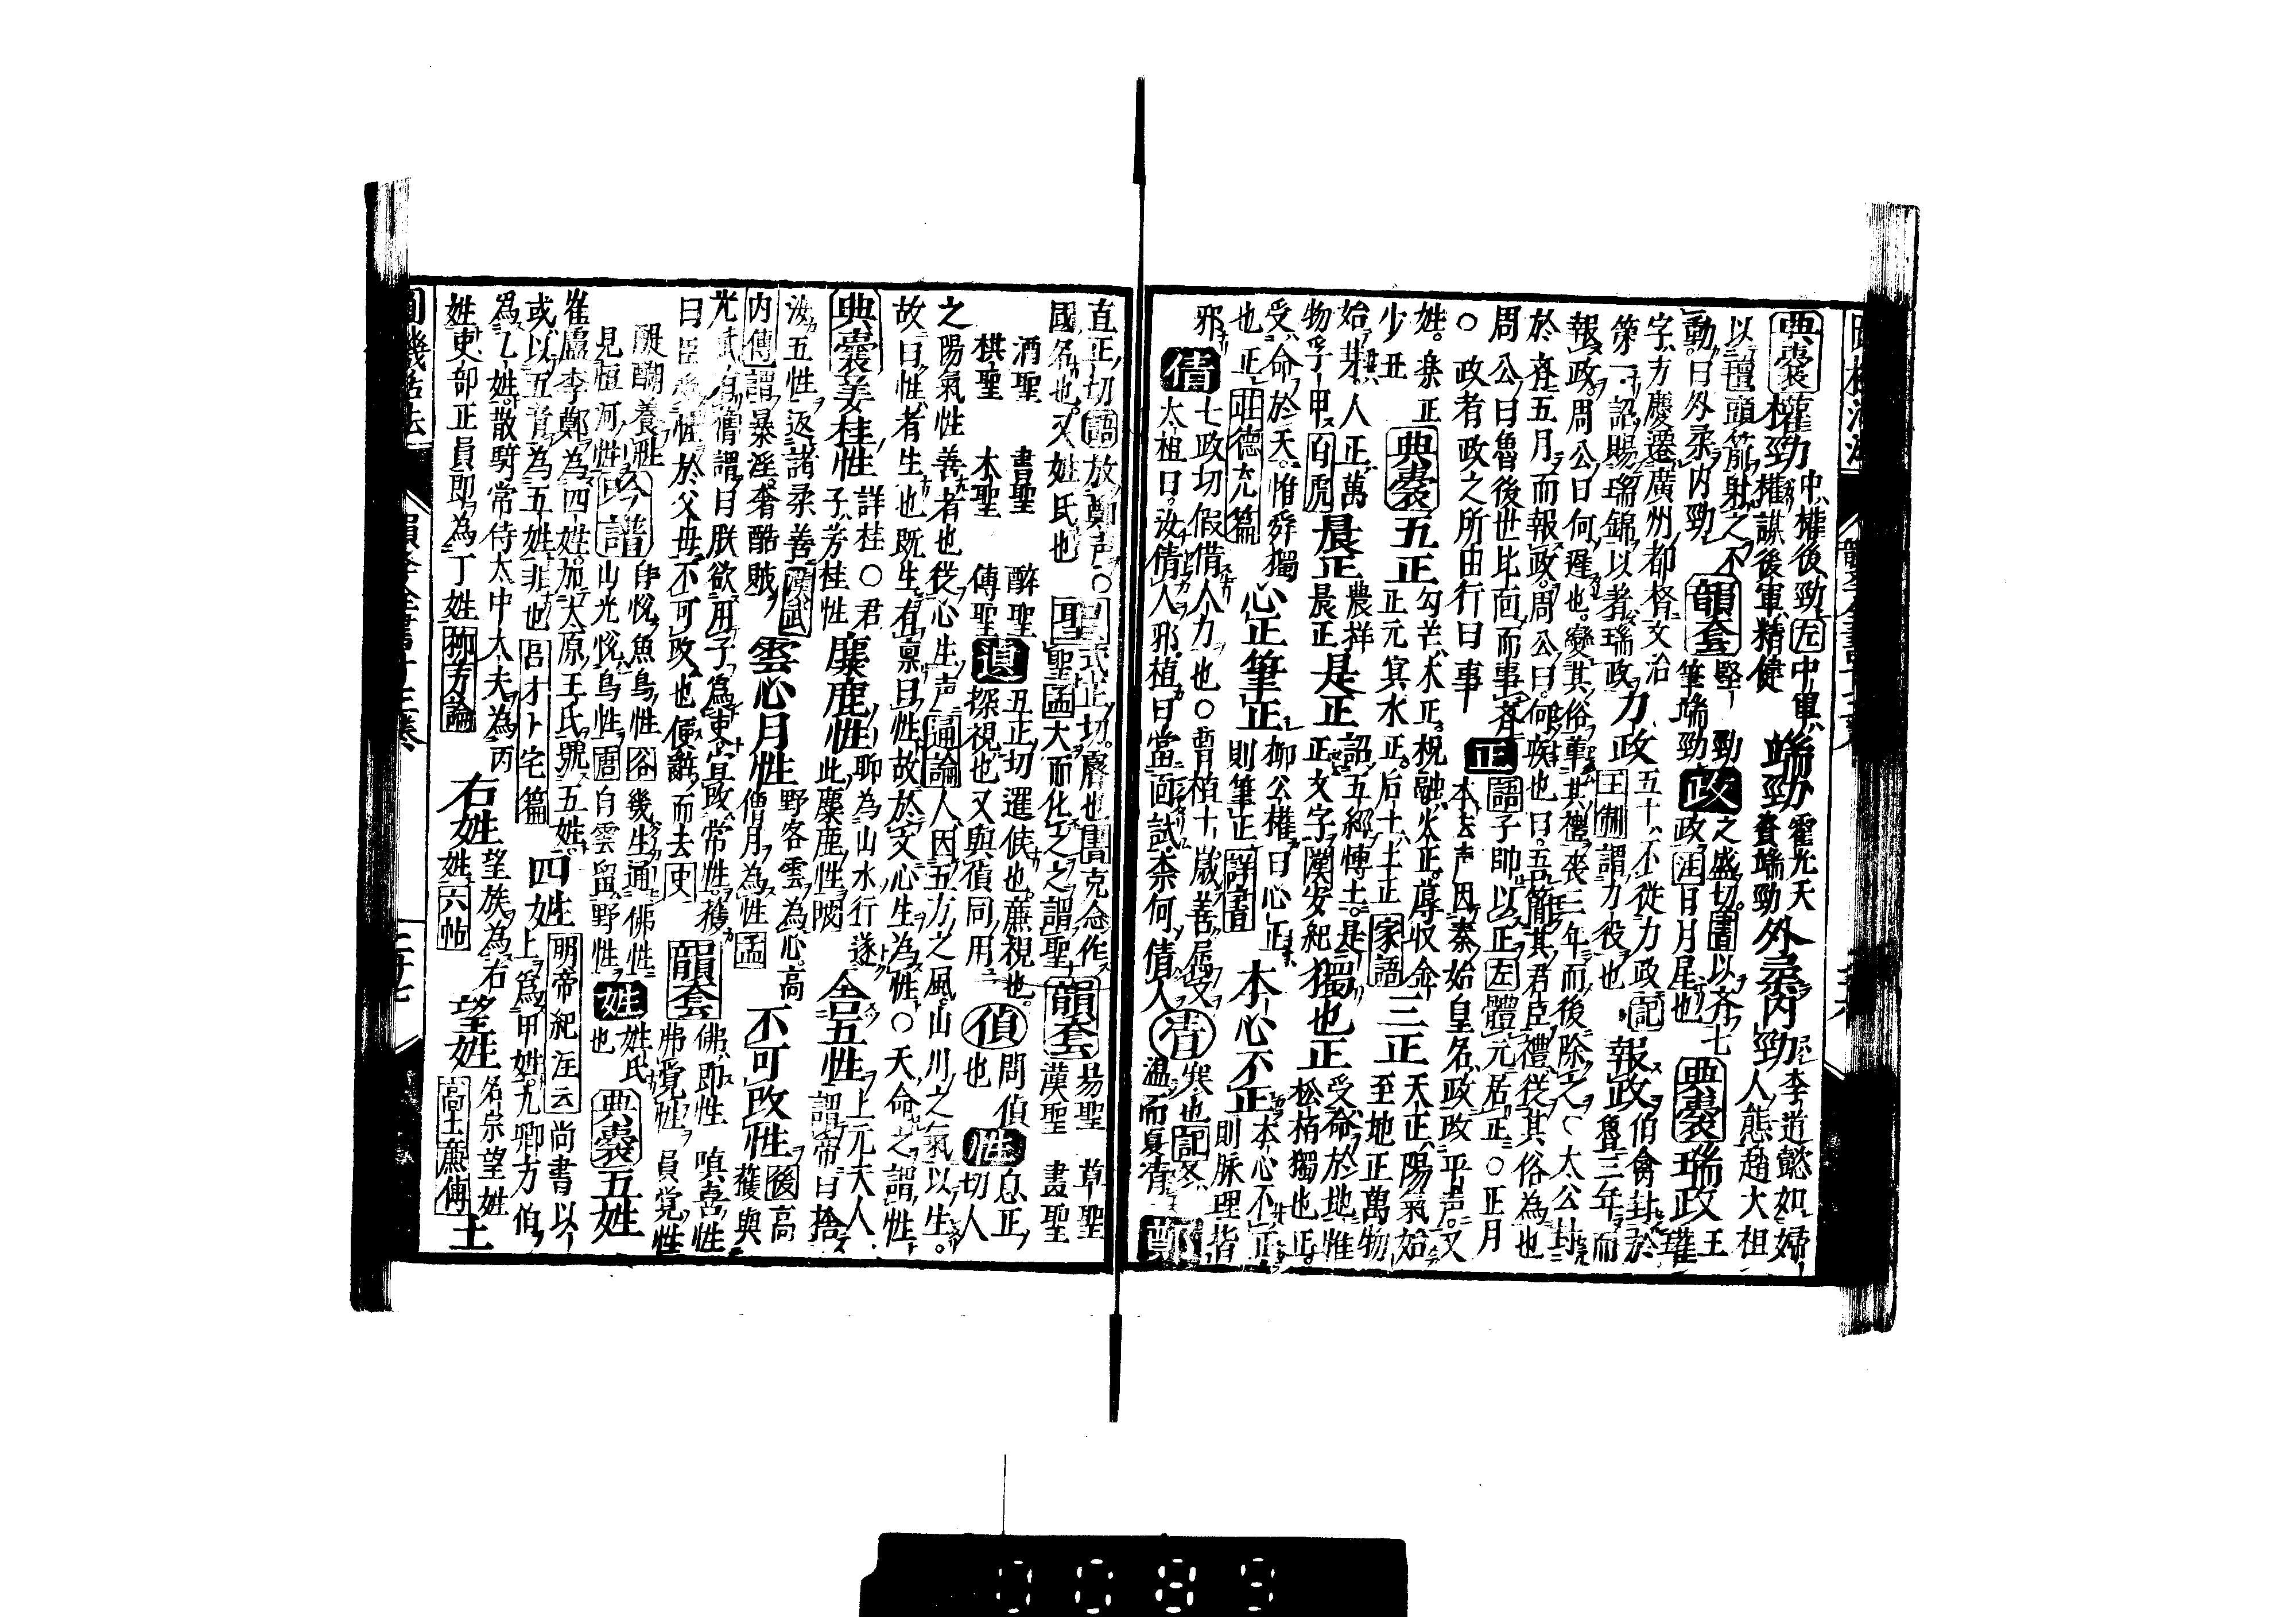 典囊權勁中權後勁左中軍
權謀後軍精健
端勁霍光天
資端勁
外柔內勁李道懿如婦
人態趙太祖
以鐙頭箭射之不
動曰外柔內勁
韻套堅勁
筆端勁
政之盛切書以齊七
政注日月星也
典囊瑞政王
字方慶遷廣州都督文治
第一詔賜瑞錦以著瑞政
力政王制謂力役也
五十不從力政記
報政伯禽封於
魯三年而
報政周公曰何遲也變其俗革其禮喪三年而後除之太公封
於齊五月而報政周公曰何疾也曰吾簡其君臣禮從其俗為也
周公曰魯後世北面而事齊
正語子帥以正左體元居正○正月
○政者政之所由行曰事
本去声因秦始皇名政政平声又
姓桒正
少丑
典囊五正勾芒木正祝融火正蓐収金
正元冥水正后土土正家語
三正天正陽氣始
至地正萬物
始芽人正萬
物孚甲白虎
晨正農祥
晨正
是正詔五經博士是
正文字漢安紀
獨也正受命於地惟
松栢獨也正
受命於天惟舜獨
也正莊德充篇
心正筆正柳公權曰心正
則筆正詳書
本心不正本心不正
則脉理皆
邪
倩七政切假借人力也○賈植十歲善属文
太祖曰汝倩人邪植曰當面試柰何倩人
凊寒也記冬
温而夏凊
鄭
直正切語放鄭声○
國名也又姓氏也
聖式正切睿也書克念作
聖孟大而化之之謂聖
韻套昜聖 草聖
漢聖 畫聖
酒聖 書聖 醉聖
棋聖 木聖 傳聖
遉丑正切邏侯也廉視也
探視也又與偵同用
偵問偵
也
性息正
切人
之陽氣性善者也從心生声通論人因五方之風山川之氣以生
故曰性者生也既生有稟曰性故於文心生為性○天命之謂性
典囊姜桂性詳桂○君
子芳桂性
麋鹿性聊為山水行遂
此麋鹿性陂
舍五性上元夫人
謂帝曰捨
汝五性返諸柔善漢武
内傳謂暴淫奢酷賊
雲心月性野客雲為心高
僧月為性孟
不可改性後高
獲與
光武有舊謂曰朕欲用子為吏宜改常性獲
曰臣受性於父母不可改也便辭而去史
韻套佛即性 嗔喜性
弗覺性 員覚性
醍醐養性
見恒河性
吟譜自悅魚鳥性俗幾生通佛性
山光悅鳥性周白雲留野性
姓姓氏
也
典囊五姓
崔盧李鄭為四姓加太原王氏號五姓
或以五音為五姓非也呂才卜宅篇
四姓明帝紀注云尚書以
上為甲姓九卿方伯
為乙姓散騎常侍太中大夫為丙
姓吏部正員郎為丁姓柳芳論
右姓望族為右
姓六帖
望姓名宗望姓
高士廉傳
士